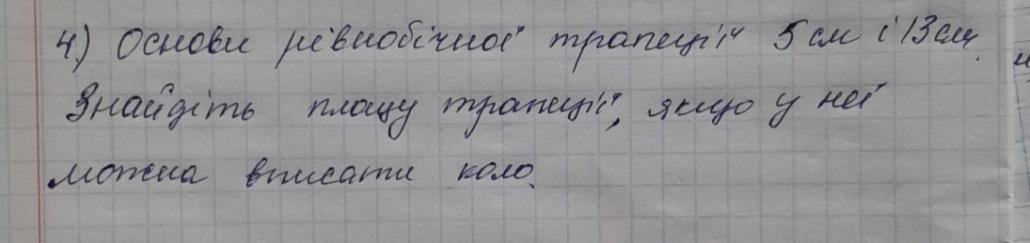 4.) Основи рівнобічної трапеції 5 см і 13 см.
Знайдіть площу трапеції, якщо у неї
можна вписати коло.